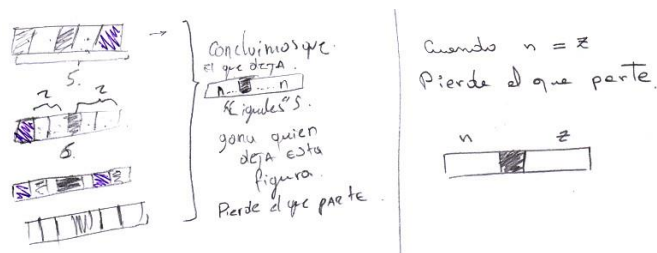 5.
2 2
6.
Concluimos que.
el que deja.
n... n
"iguales" s.
gana quien
deja esta
figura.
Pierde el que parte.
Cuando n = z
Pierde el que parte.
n z